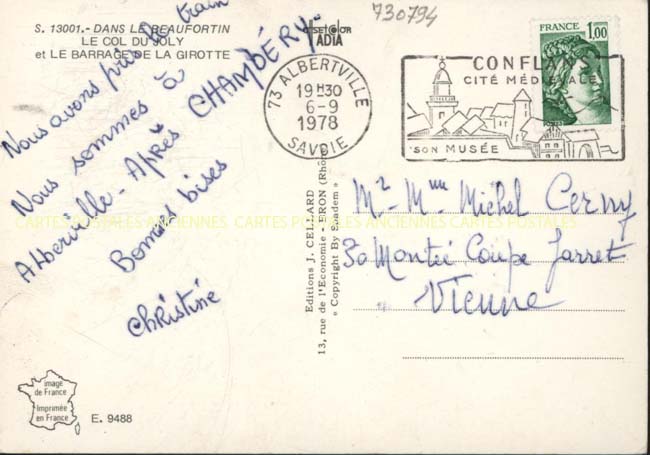 730794
S. 13001.- DANS LE BEAUFORTIN
LE COL DU JOLY
et LE BARRAGE DE LA GIROTTE
offset color
IADIA
Nous avons pris le train
Nous sommes à
Alberville - Après CHAMBÉRY.
Bonnes bises
Christine
73 ALBERTVILLE
19 H30
6-9
1978
SAVOIE
CONFLANS
CITÉ MÉDIÉVALE
SON MUSÉE
FRANCE
1,00
Mr - Mme Michel Cerny
30 Montée Coupe Jarret
Vienne
Editions J. CELLARD
13, rue de l'Economie - BRON (Rhône)
« Copyright By Sandem »
CARTES POSTALES ANCIENNES CARTES POSTALES ANCIENNES CARTES POSTALES
image
de France
Imprimée
en France
E. 9488